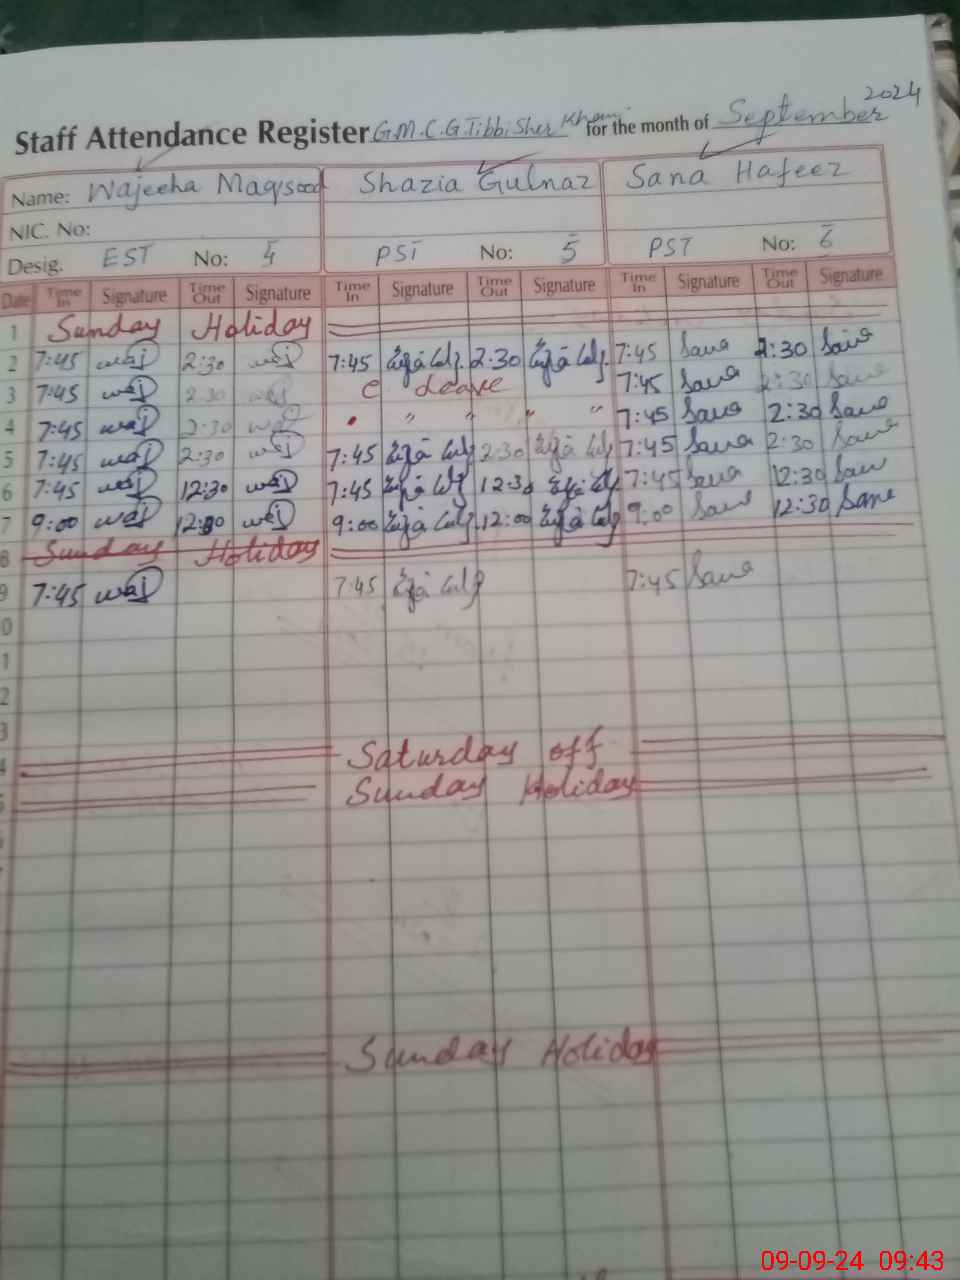 2024
Staff Attendance Register G.M.C.G.Tibbi Sher Khan for the month of September
Name: Wajeeha Maqsood Shazia Gulnaz Sana Hafeez
NIC. No:
Desig. EST No: 4 PST No: 5 PST No: 6
Date Time In Signature Time Out Signature Time In Signature Time Out Signature Time In Signature Time Out Signature
1 Sunday Holiday
2 7:45 waj 2:30 waj 7:45 2:30 7:45 Sana 2:30 Sana
3 7:45 waj 2:30 waj C Leave 7:45 Sana 2:30 Sana
4 7:45 waj 2:30 waj " " " " 7:45 Sana 2:30 Sana
5 7:45 waj 2:30 waj 7:45 2:30 7:45 Sana 2:30 Sana
6 7:45 waj 12:30 waj 7:45 12:30 7:45 Sana 12:30 Sana
7 9:00 waj 12:30 waj 9:00 12:00 9:00 Sana 12:30 Sana
8 Sunday Holiday
9 7:45 waj 7:45 7:45 Sana
0
1
2
3
4 Saturday off
5 Sunday Holiday
Sunday Holiday
09-09-24 09:43